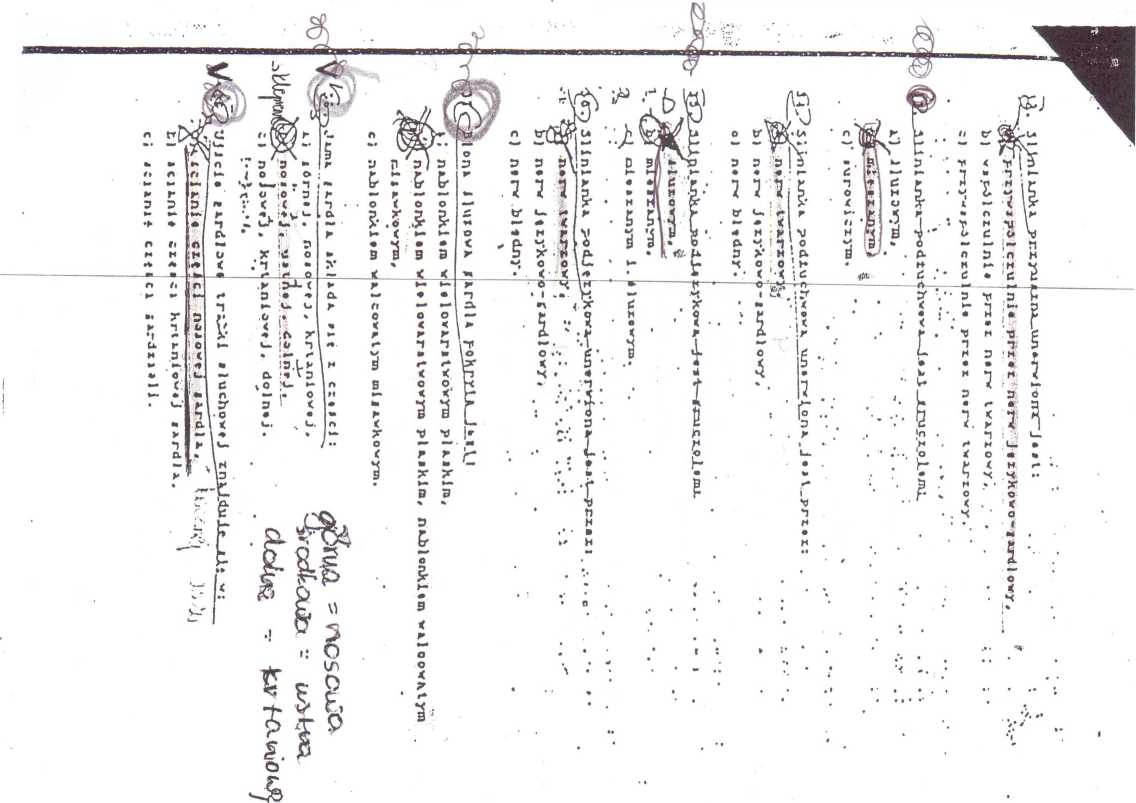 Ślinianka przyuszna unerwiona jest:
przywspółczulnie przez nerw językowo-gardłowy,
b) współczulnie przez nerw twarzowy,
c) przywspółczulnie przez nerw twarzowy.
Ślinianka podżuchwowa jest gruczołem:
a) śluzowym,
mieszanym
c) surowiczym.
Ślinianka podżuchwowa unerwiona jest przez:
nerw twarzowy,
b) nerw językowo-gardłowy,
c) nerw błędny.
Ślinianka podjęzykowa jest gruczołem:
śluzowym,
b) mieszanym,
mieszanym i śluzowym.
Ślinianka podjęzykowa unerwiona jest przez:
nerw twarzowy,
b) nerw językowo-gardłowy,
c) nerw błędny.
Błona śluzowa gardła pokryta jest:
nabłonkiem wielowarstwowym płaskim,
nabłonkiem wielowarstwowym płaskim, nabłonkiem walcowatym
migawkowym,
c) nabłonkiem walcowatym migawkowym.
Jama gardła składa się z części:
a) górnej, nosowej, krtaniowej,
nosowej, ustnej, dolnej,
c) nosowej, krtaniowej, dolnej.
górna = nosowa
środkowa = ustna
dolna = krtaniowa
Ujście gardłowe trąbki słuchowej znajduje się w:
ścianie części nosowej gardła,
b) ścianie części krtaniowej gardła,
c) ścianie części gardzieli.